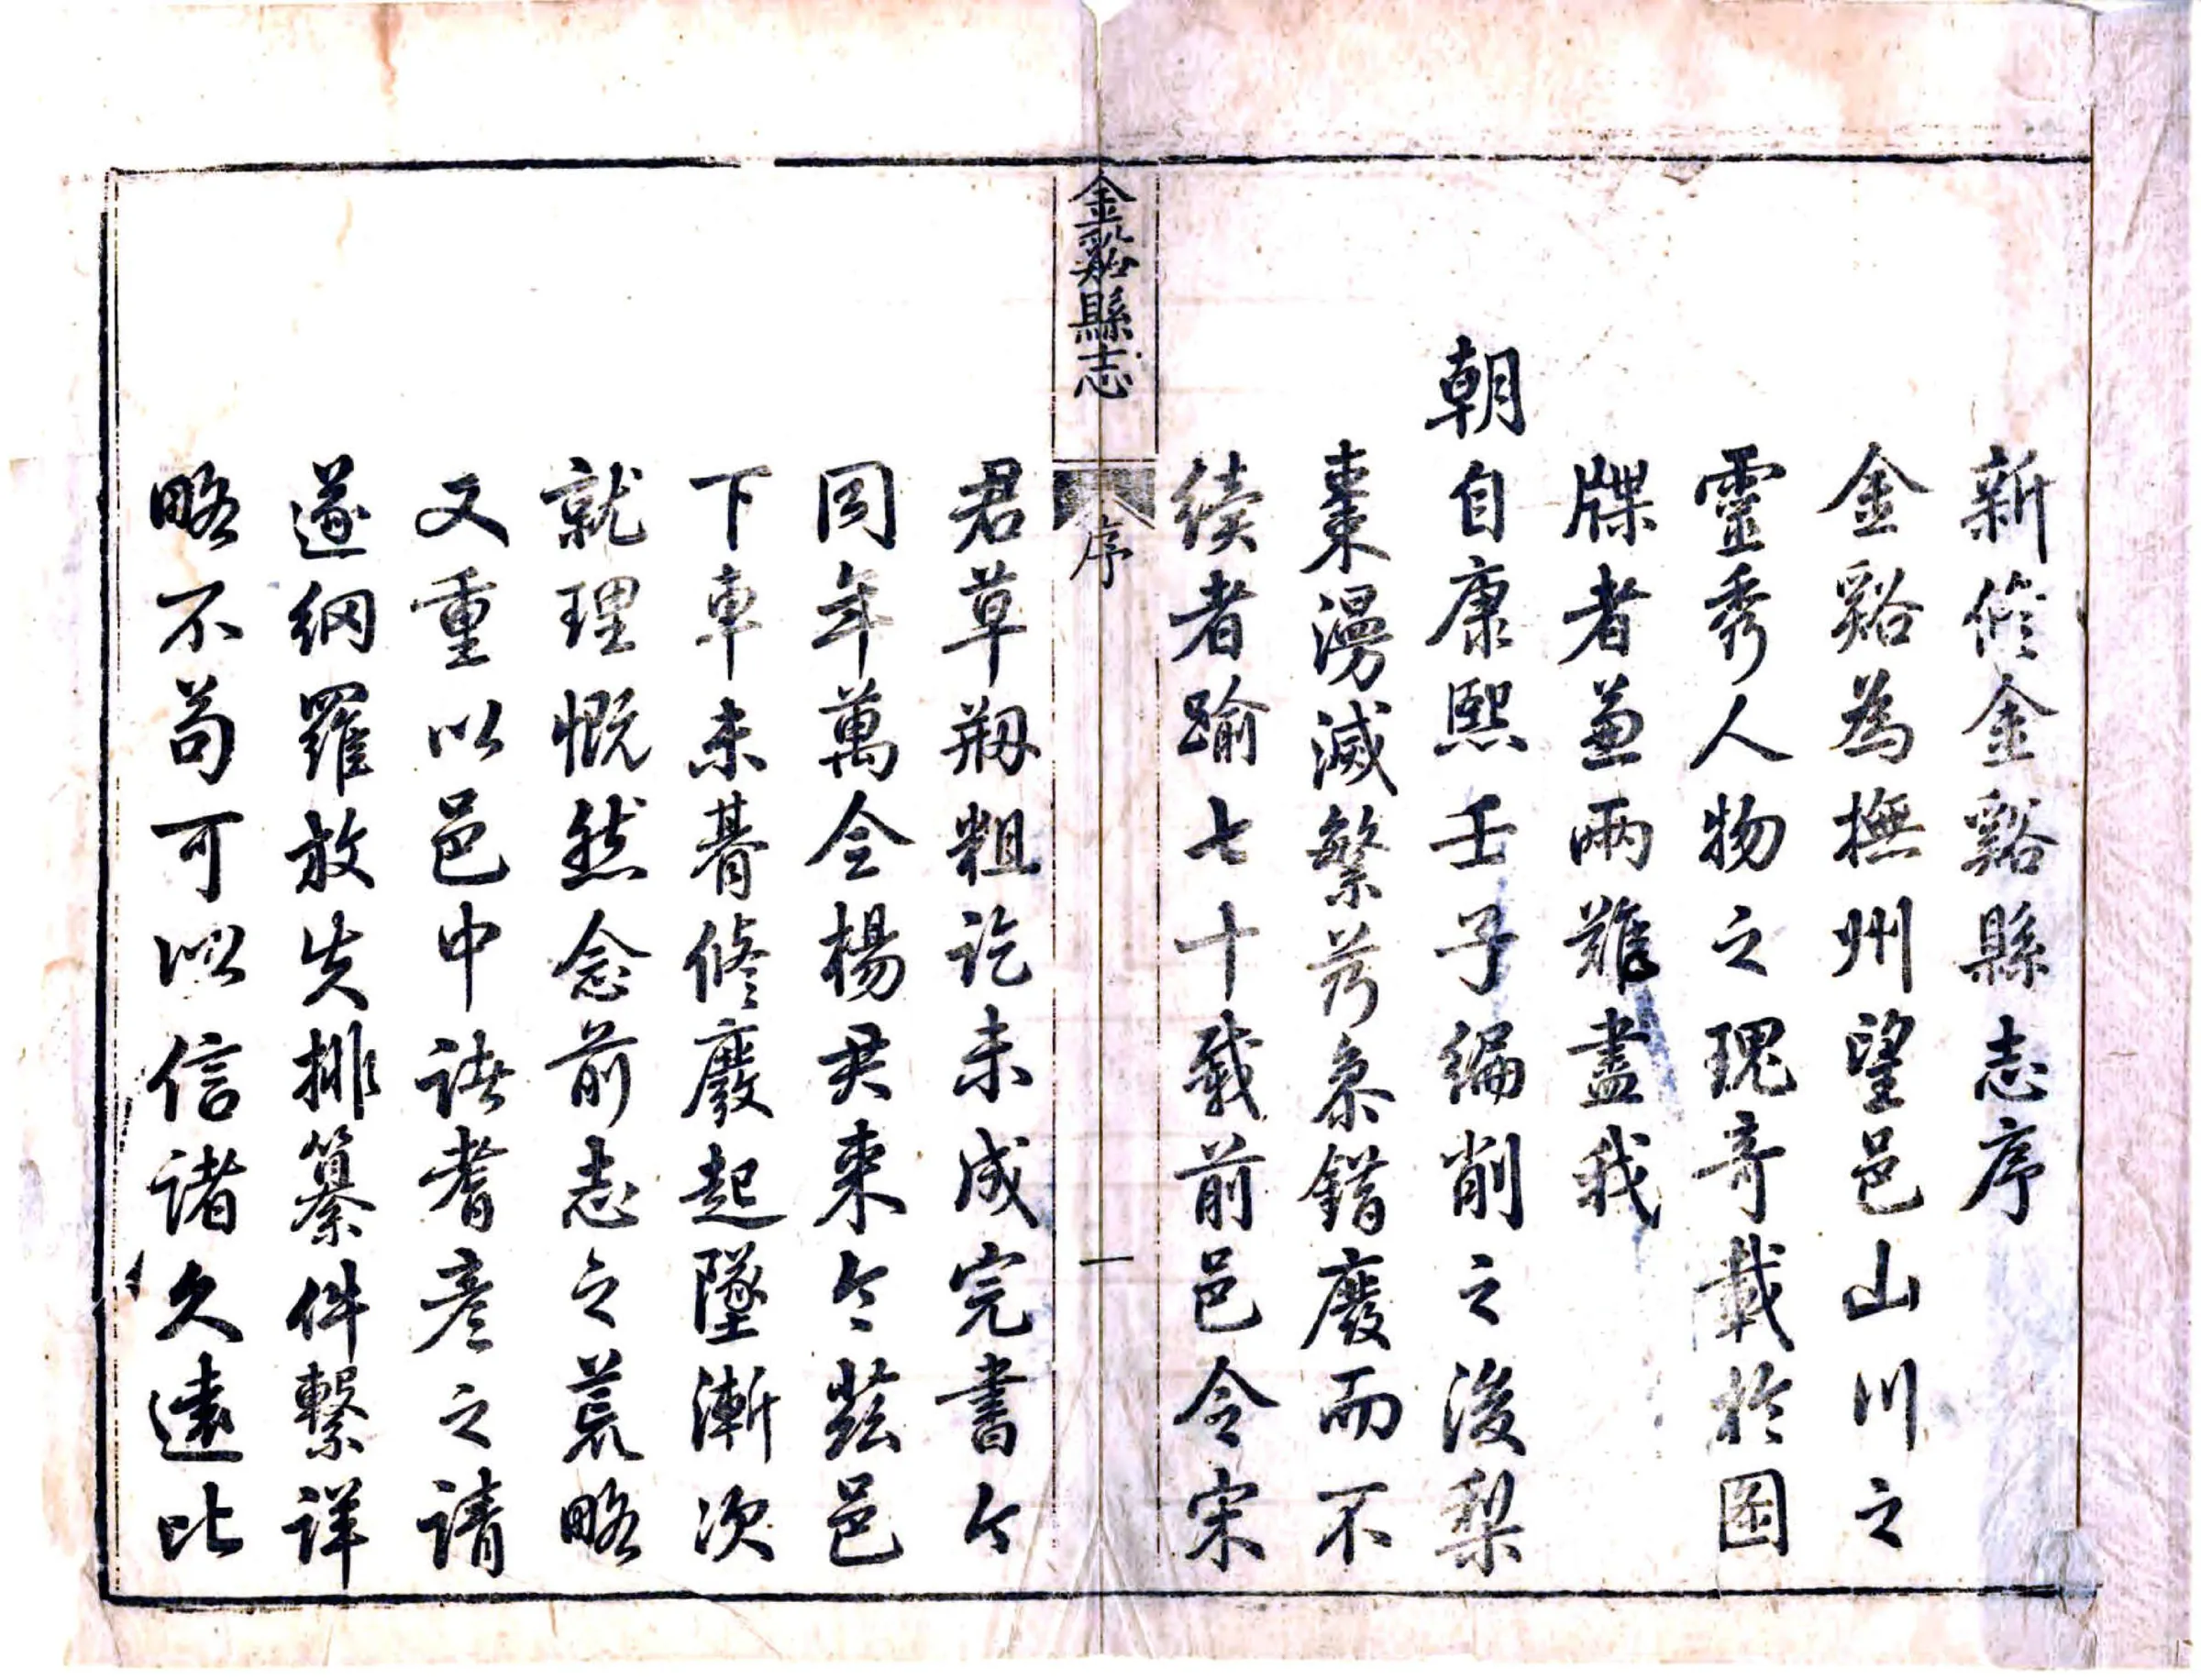 新修金谿縣志序
金谿為撫州望邑山川之
靈秀人物之瑰奇載於圖
牒者兼兩難盡我
朝自康熙壬子編削之後梨
棗漫滅繁芿叅錯廢而不
續者踰七十載前邑令宋
金谿縣志
序
一
君草剏粗訖未成完書今
同年萬全楊君來令茲邑
下車未朞修廢起墜漸次
就理慨然念前志之荒略
又重以邑中諸耆彥之請
遂網羅放失排纂件繫詳
略不苟可以信諸久遠比